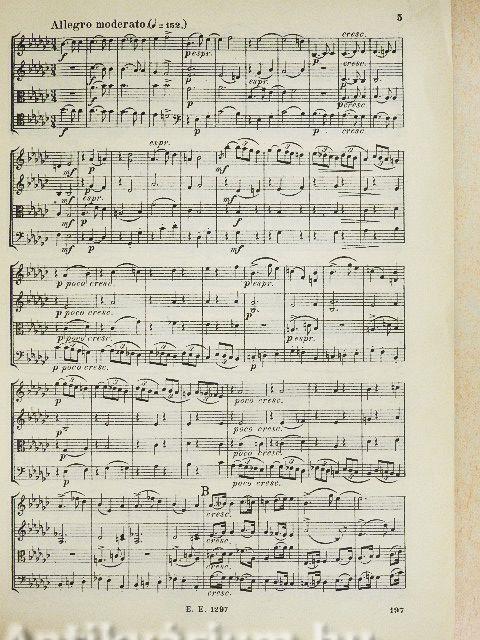 5
Allegro moderato (♩ = 152.)
cresc.
f p espr. p
cresc.
f p espr. p
f p p cresc.
f p p cresc.
espr.
mf p mf
mf p mf
espr.
mf p mf
mf p mf
p poco cresc. p espr.
p poco cresc. p
p poco cresc. p espr.
p poco cresc. p
p poco cresc.
p poco cresc.
p poco cresc.
p poco cresc.
B
cresc.
cresc.
cresc.
cresc.
E. E. 1297 197